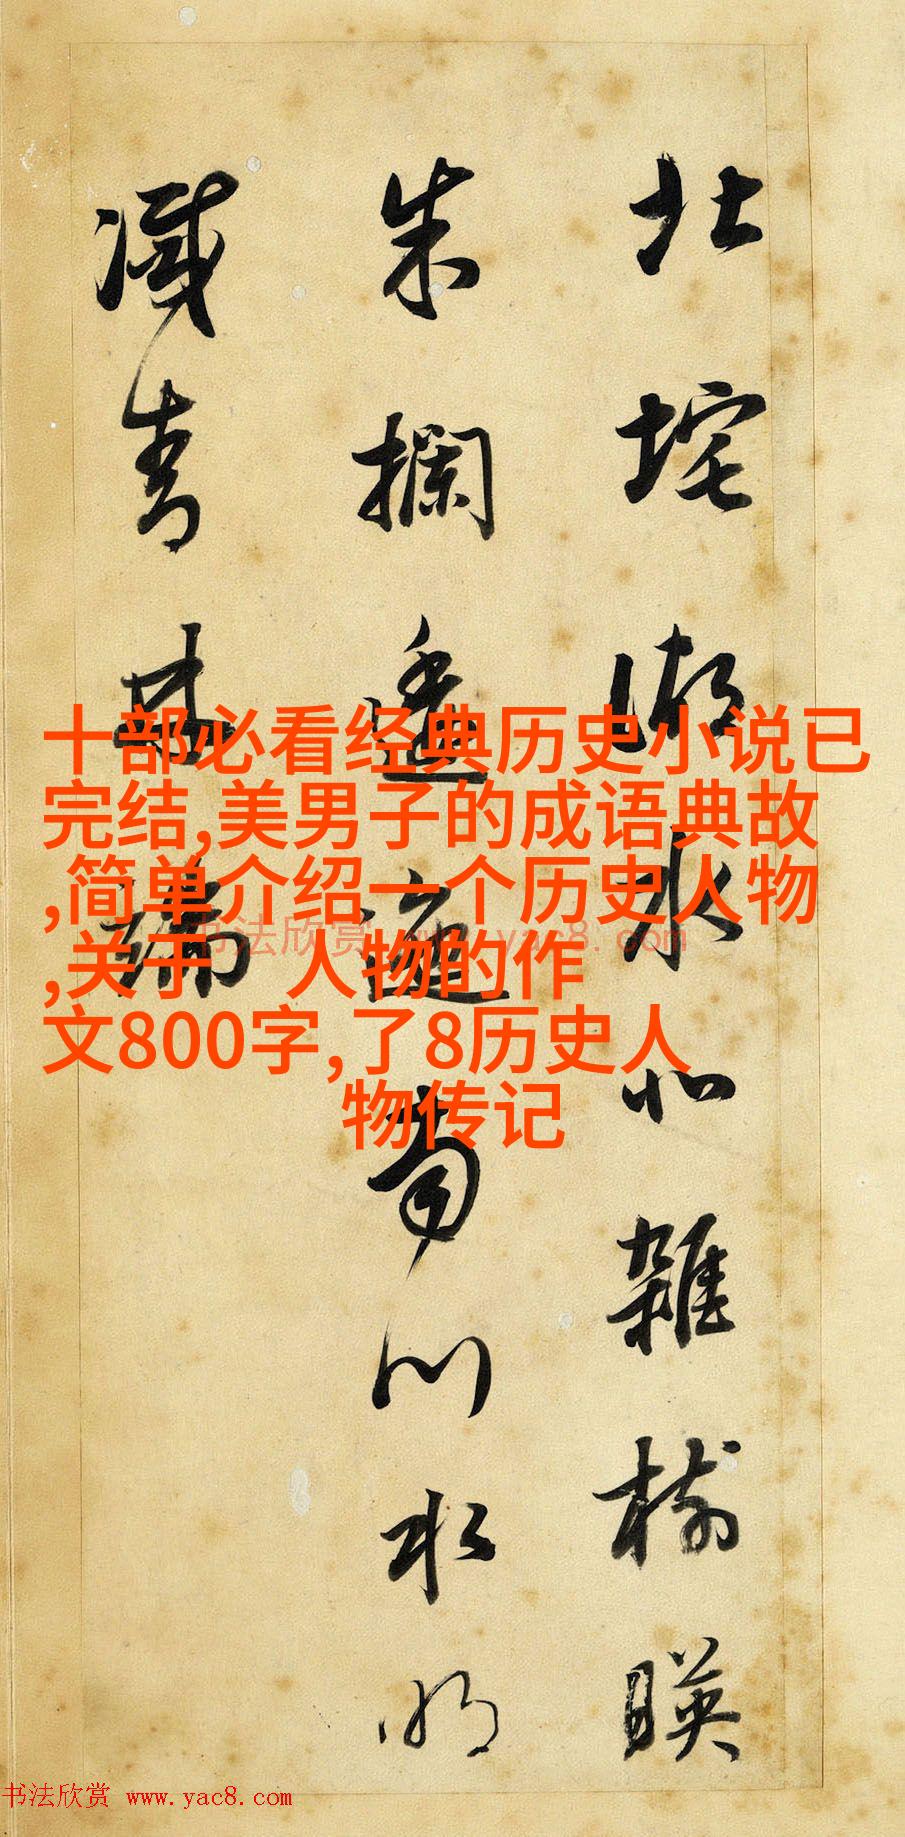 北垞湖水北雜樹暎
朱攔逶迤南川水明
滅青林端
十部必看经典历史小说已
完结,美男子的成语典故
,简单介绍一个历史人物
,关于 人物的作
文800字,了8历史人
物传记
书法欣赏 www.yac8.com
书法欣赏 www.yac8.com